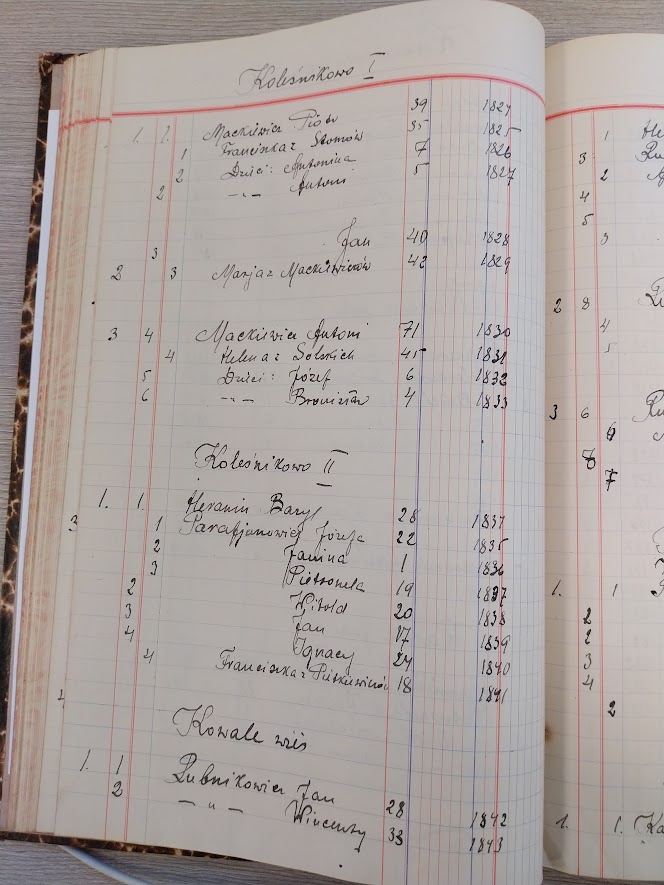 Koleśnikowo I
1. 1. Mackiewicz Piotr 39 1824
1 Franciszka z Słomów 35 1825
2 Dzieci: Antonina 7 1826
2 -„- Antoni 5 1827
3 Jan 40 1828
2 3 Marja z Mackiewiczów 42 1829
3 4 Mackiewicz Antoni 71 1830
4 Helena z 45 1831
5 Dzieci: Józef 6 1832
6 -„- Bronisław 4 1833
Koleśnikowo II
1. 1. Heranin Bazyl 28 1834
3 1 Parafjanowicz Józefa 22 1835
2 Janina 1 1836
3 Pietronela 19 1837
2 Witold 20 1838
3 Jan 17 1839
4 Ignacy 24 1840
4 Franciszka z Pietkiewiczów 18 1841
4
Kowale wieś
1. 1 Rubnikowicz Jan 28 1842
2 -„- Wincenty 33 1843
1 He
3
2
4
5
3
2 8
4
5
3 6
6
7
1. 1
2
2
3
4
2
1. 1. Ka